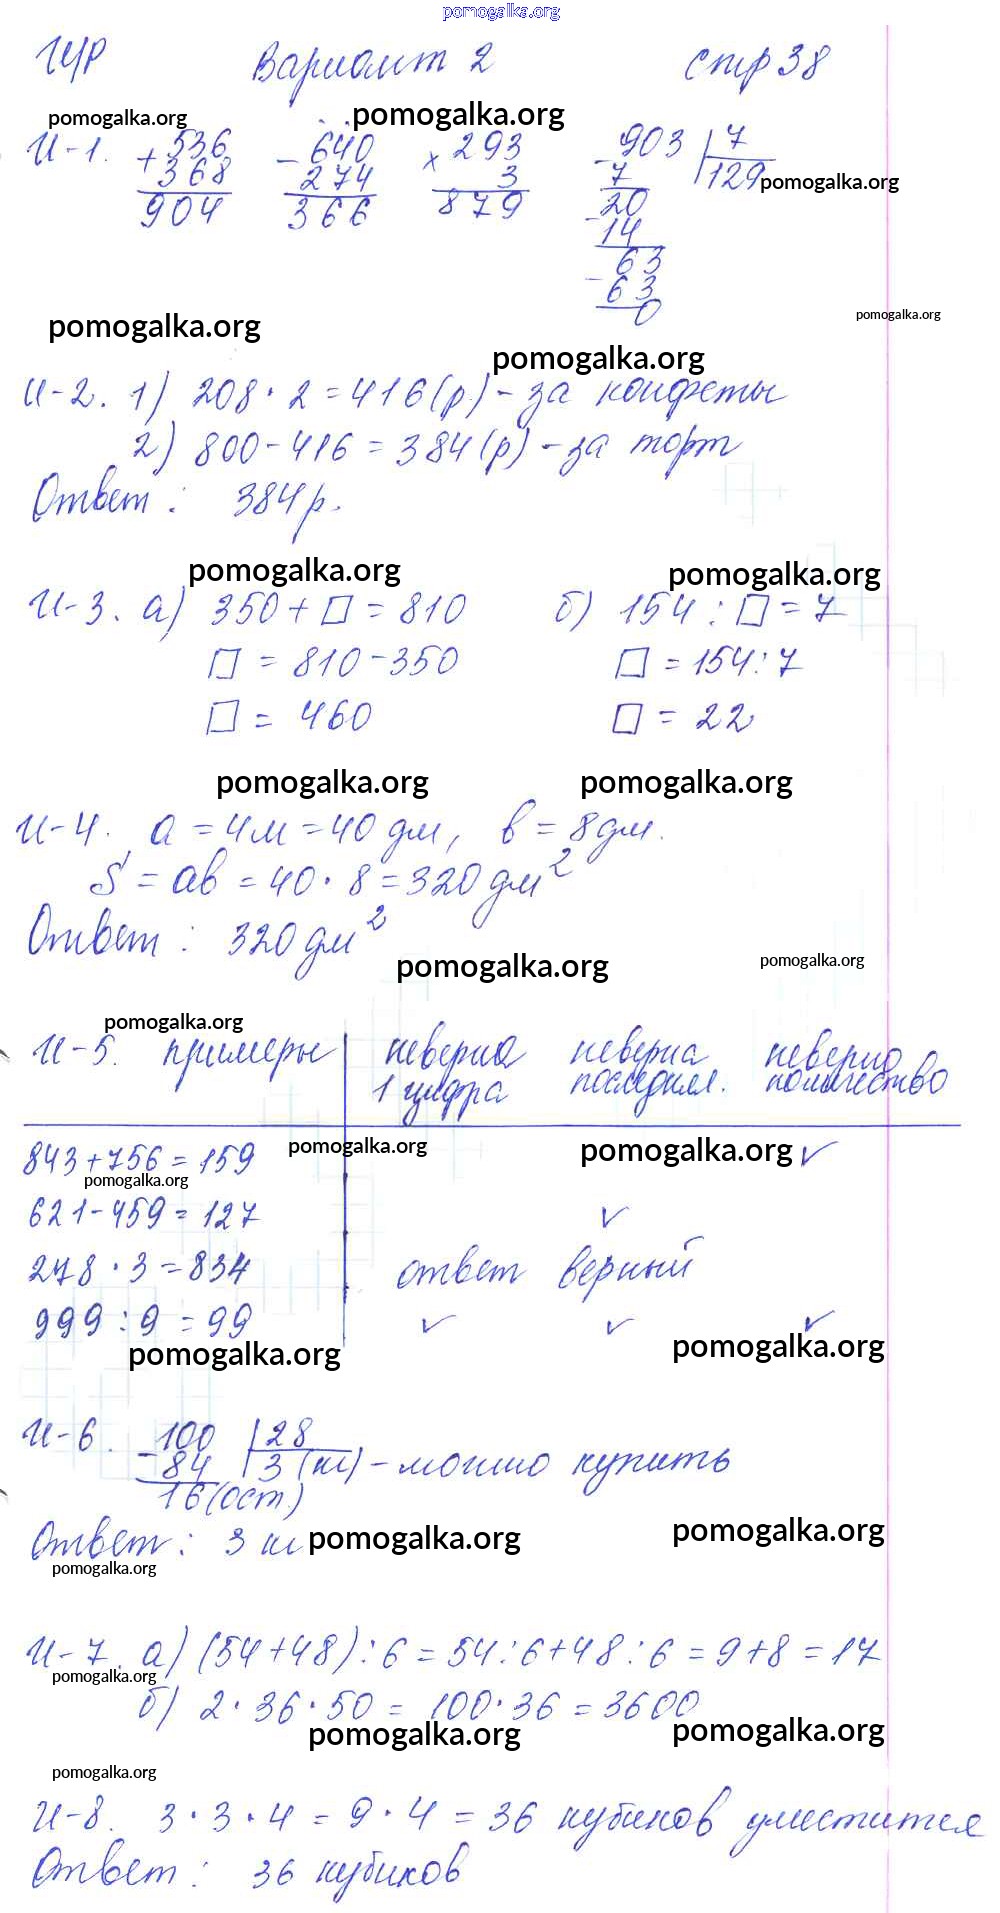 pomogalka.org
ИЧР Вариант 2 стр 38
pomogalka.org pomogalka.org
И-1. + 536 - 640 × 293 - 903 | 7
368 274 3 7 129 pomogalka.org
904 366 879 20
- 14
63
- 63
0
pomogalka.org pomogalka.org
pomogalka.org
И-2. 1) 208 · 2 = 416 (р) - за конфеты
2) 800 - 416 = 384 (р) - за торт
Ответ: 384 р.
pomogalka.org pomogalka.org
И-3. а) 350 + □ = 810 б) 154 : □ = 7
□ = 810 - 350 □ = 154 : 7
□ = 460 □ = 22
pomogalka.org pomogalka.org
И-4. а = 4 м = 40 дм, в = 8 дм.
S = ав = 40 · 8 = 320 дм²
Ответ: 320 дм²
pomogalka.org pomogalka.org
pomogalka.org
И-5. примеры неверна неверна неверно
1 цифра последняя. количество
pomogalka.org pomogalka.org
843 + 756 = 159 ✓
pomogalka.org
621 - 459 = 127 ✓
278 · 3 = 834 ответ верный
999 : 9 = 99 ✓ ✓ ✓
pomogalka.org pomogalka.org
И-6. - 100 | 28
84 3 (кг) - можно купить
16 (ост.)
Ответ: 3 кг pomogalka.org pomogalka.org
pomogalka.org
И-7. а) (54 + 48) : 6 = 54 : 6 + 48 : 6 = 9 + 8 = 17
pomogalka.org
б) 2 · 36 · 50 = 100 · 36 = 3600
pomogalka.org pomogalka.org
pomogalka.org
И-8. 3 · 3 · 4 = 9 · 4 = 36 кубиков уместится
Ответ: 36 кубиков